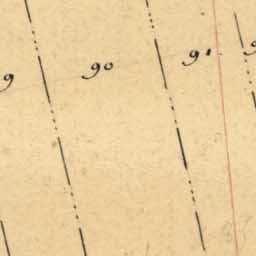 9
90
91
9